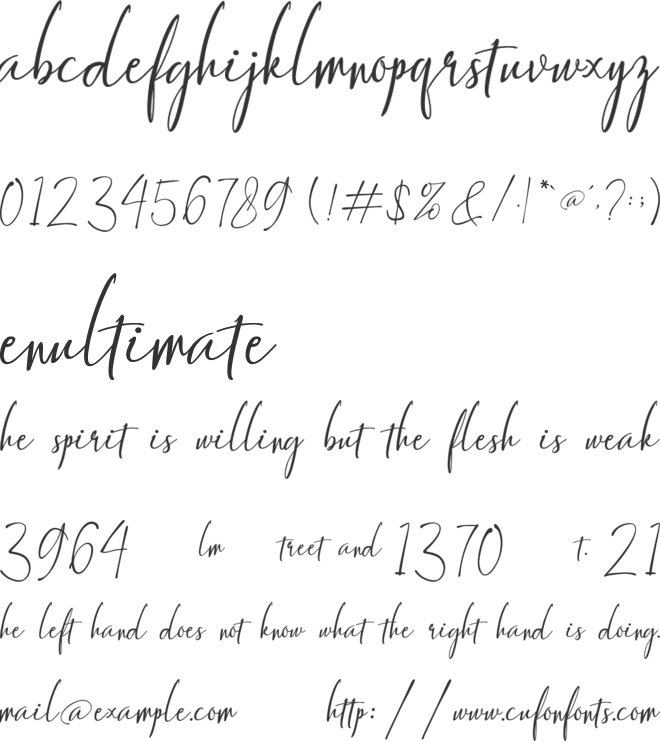 abcdefghijklmnopqrstuvwxyz
0123456789 (!#$%&/.|*`@´,;?:;)
enultimate
he spirit is willing but the flesh is weak
3964 lm treet and 1370 t. 21
he left hand does not know what the right hand is doing.
mail@example.com http://www.cufonfonts.com